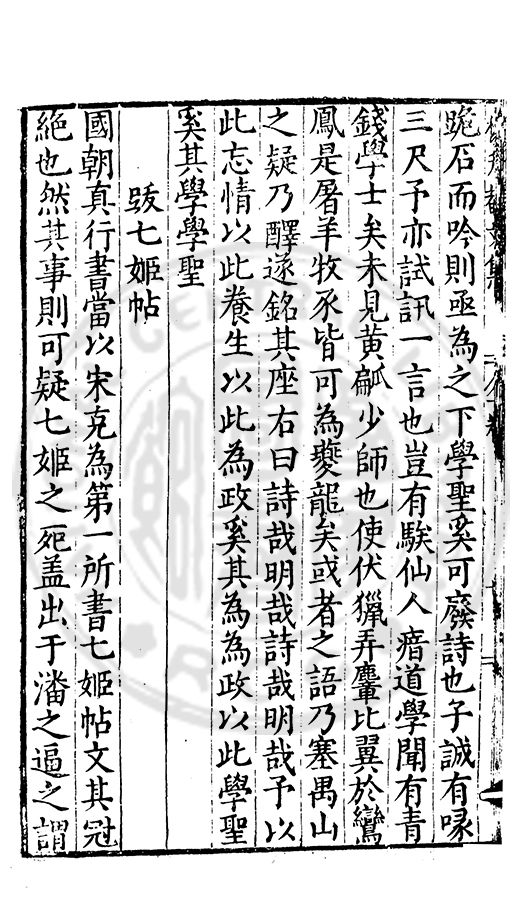 跪石而吟則亟為之下學聖奚可廢詩也子誠有喙
三尺予亦試訊一言也豈有騃仙人瘖道學聞有青
錢學士矣未見黃瓠少師也使伏獵弄麞比翼於鸞
鳳是屠羊牧豕皆可為夔龍矣或者之語乃塞禺山
之疑乃醳遂銘其座右曰詩哉明哉詩哉明哉予以
此忘情以此養生以此為政奚其為為政以此學聖
奚其學學聖
跋七姬帖
國朝真行書當以宋克為第一所書七姬帖文其冠
絕也然其事則可疑七姬之死盖出于潘之逼之謂